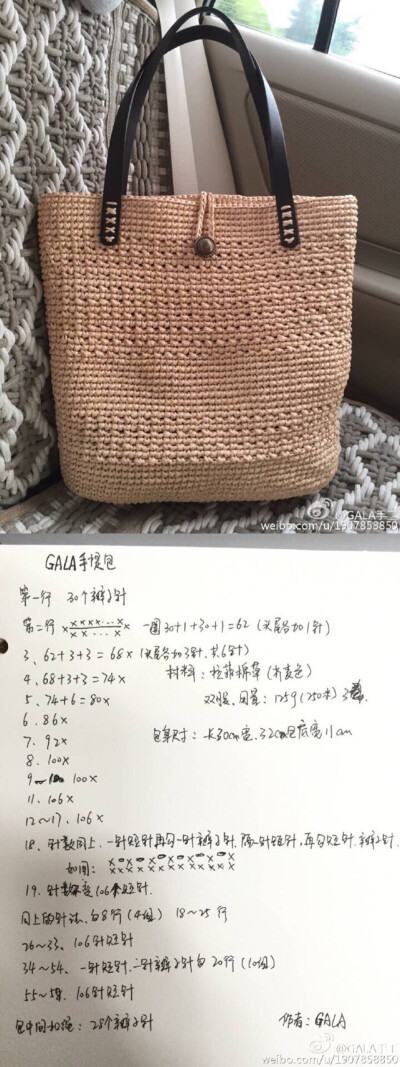 @GALA手工
weibo.com/u/1907858850
GALA手提包
第一行 30个辫子针
第二行 x xxxx...x x 一圈30+1+30+1=62 (头尾各加1针)
xx xx...x
3、62+3+3=68x (头尾各加3针,共6针)
4、68+3+3=74x 材料:拉菲棉草(折麦色)
5、74+6=80x 双股、用量:175g(250米)
6、86x
7、92x 包身尺寸:长30cm宽、32cm包底高11cm
8、100x
9~10 100x
11、106x
12~17、106x
18、针数同上、一针短针再勾一针辫子针、隔一针短针,再勾短针、辫子针、
如图:
19、针数不变106个短针、
同上的针法、勾8行(4组) 18~25行
26~33、106针短针
34~54、一针短针、一针辫子针勾20行(10组)
55~58、106针短针
包中间扣绳:28个辫子针 作者:GALA
@GALA手工
weibo.com/u/1907858850